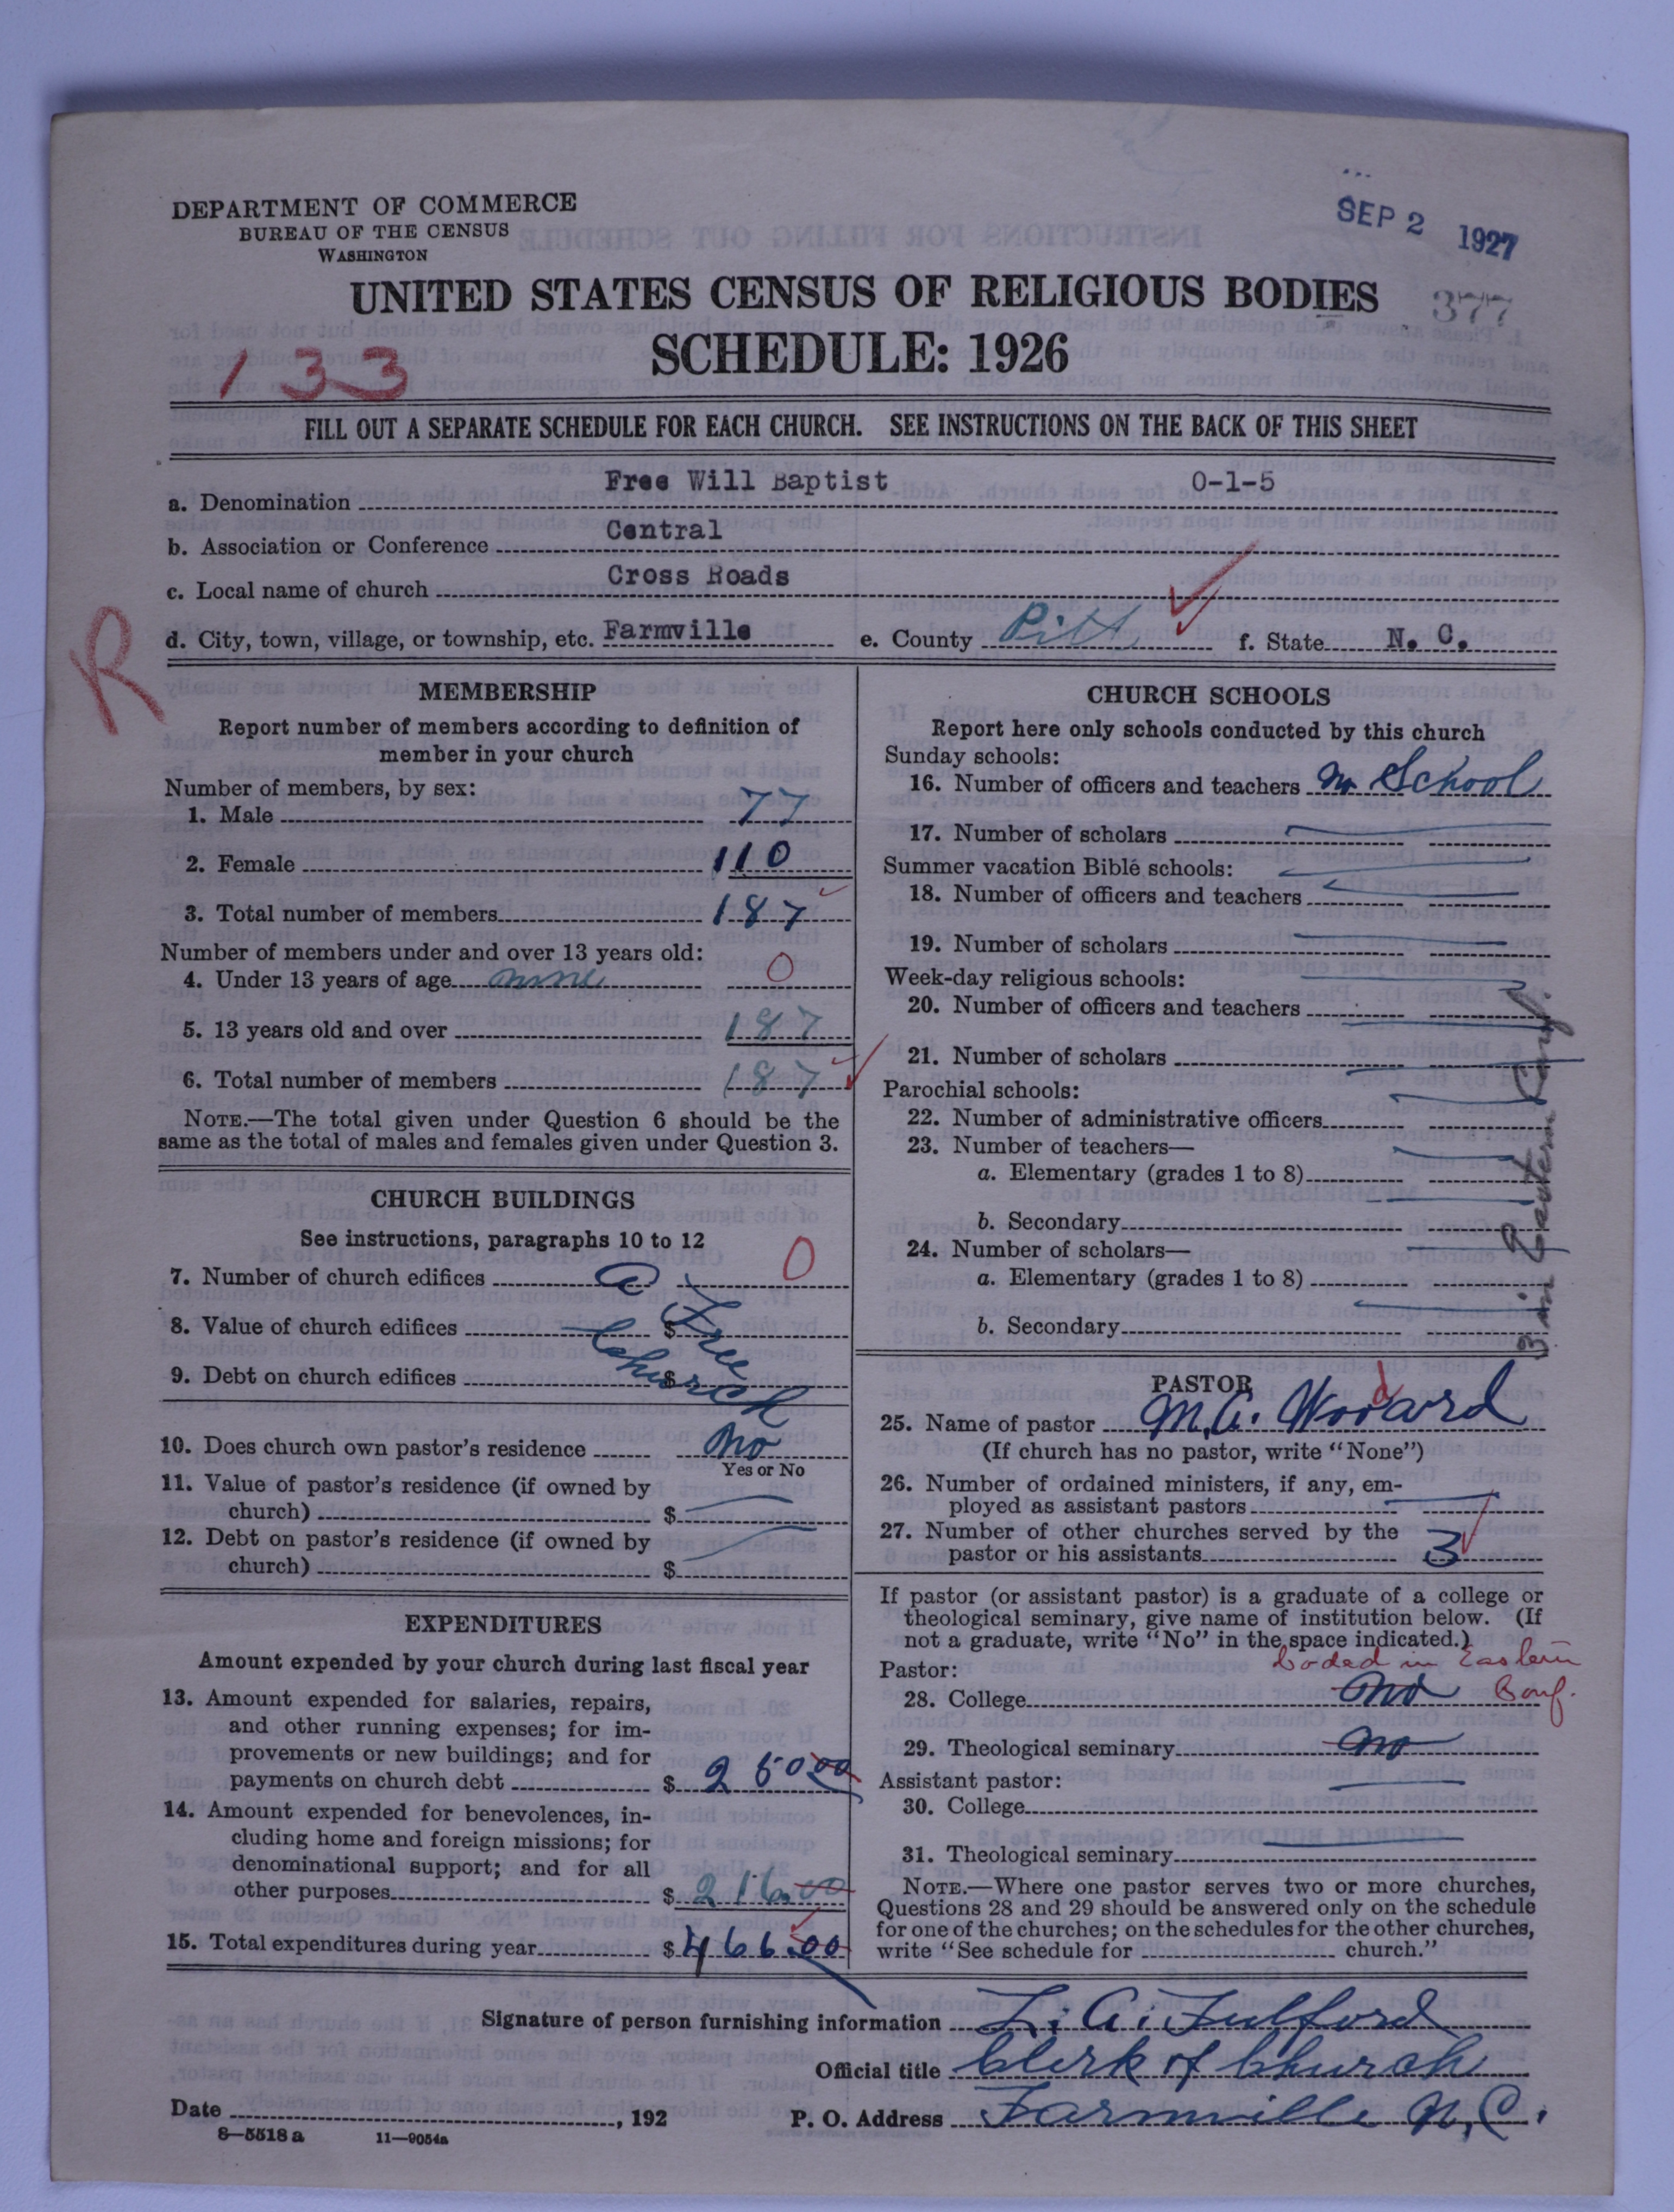 DEPARTMENT OF COMMERCE
BUREAU OF THE CENSUS
WASHINGTON
SEP 2 1927
UNITED STATES CENSUS OF RELIGIOUS BODIES
377
SCHEDULE: 1926
133
FILL OUT A SEPARATE SCHEDULE FOR EACH CHURCH. SEE INSTRUCTIONS ON THE BACK OF THIS SHEET
a. Denomination Free Will Baptist 0-1-5
b. Association or Conference Central
c. Local name of church Cross Roads
d. City, town, village, or township, etc. Farmville e. County Pitt f. State N. C.
R
MEMBERSHIP
Report number of members according to definition of
member in your church
Number of members, by sex:
1. Male 77
2. Female 110
3. Total number of members 187
Number of members under and over 13 years old:
4. Under 13 years of age none 0
5. 13 years old and over 187
6. Total number of members 187
NOTE.—The total given under Question 6 should be the
same as the total of males and females given under Question 3.
CHURCH BUILDINGS
See instructions, paragraphs 10 to 12
7. Number of church edifices a 0
8. Value of church edifices $ Free
9. Debt on church edifices $ Church
10. Does church own pastor's residence No
Yes or No
11. Value of pastor's residence (if owned by
church) $
12. Debt on pastor's residence (if owned by
church) $
EXPENDITURES
Amount expended by your church during last fiscal year
13. Amount expended for salaries, repairs,
and other running expenses; for im-
provements or new buildings; and for
payments on church debt $ 250.00
14. Amount expended for benevolences, in-
cluding home and foreign missions; for
denominational support; and for all
other purposes $ 216.00
15. Total expenditures during year $ 466.00
CHURCH SCHOOLS
Report here only schools conducted by this church
Sunday schools:
16. Number of officers and teachers No School
17. Number of scholars
Summer vacation Bible schools:
18. Number of officers and teachers
19. Number of scholars
Week-day religious schools:
20. Number of officers and teachers
21. Number of scholars
Parochial schools:
22. Number of administrative officers
23. Number of teachers—
a. Elementary (grades 1 to 8)
b. Secondary
24. Number of scholars—
a. Elementary (grades 1 to 8)
b. Secondary
3 in Eastern Conf.
PASTOR
25. Name of pastor M. A. Woodard
(If church has no pastor, write "None")
26. Number of ordained ministers, if any, em-
ployed as assistant pastors
27. Number of other churches served by the
pastor or his assistants 3
If pastor (or assistant pastor) is a graduate of a college or
theological seminary, give name of institution below. (If
not a graduate, write "No" in the space indicated.)
Pastor: Coded in Eastern
28. College No Conf.
29. Theological seminary No
Assistant pastor:
30. College
31. Theological seminary
NOTE.—Where one pastor serves two or more churches,
Questions 28 and 29 should be answered only on the schedule
for one of the churches; on the schedules for the other churches,
write "See schedule for church."
Signature of person furnishing information L. A. Fulford
Official title Clerk of Church
Date , 192 P. O. Address Farmville N. C.
8—5518 a 11—9054a